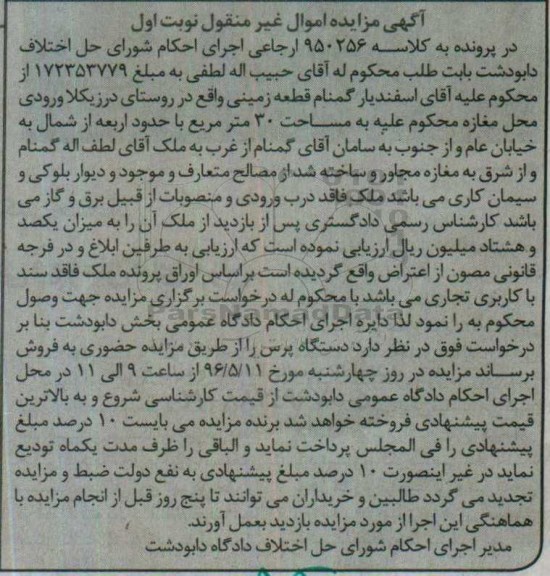 آگهی مزایده اموال غیر منقول نوبت اول
در پرونده به کلاسه ۹۵۰۲۵۶ ارجاعی اجرای احکام شورای حل اختلاف
دابودشت بابت طلب محکوم له آقای حبیب اله لطفی به مبلغ ۱۷۲۳۵۳۷۷۹ از
محکوم علیه آقای اسفندیار گمنام قطعه زمینی واقع در روستای درزیکلا ورودی
محل مغازه محکوم علیه به مساحت ۳۰ متر مربع با حدود اربعه از شمال به
خیابان عام و از جنوب به سامان آقای گمنام از غرب به ملک آقای لطف اله گمنام
و از شرق به مغازه مجاور و ساخته شد از مصالح متعارف و موجود و دیوار بلوکی و
سیمان کاری می باشد ملک فاقد درب ورودی و منصوبات از قبیل برق و گاز می
باشد کارشناس رسمی دادگستری پس از بازدید از ملک آن را به میزان یکصد
و هشتاد میلیون ریال ارزیابی نموده است که ارزیابی به طرفین ابلاغ و در فرجه
قانونی مصون از اعتراض واقع گردیده است براساس اوراق پرونده ملک فاقد سند
با کاربری تجاری می باشد با محکوم له درخواست برگزاری مزایده جهت وصول
محکوم به را نمود لذا دایره اجرای احکام دادگاه عمومی بخش دابودشت بنا بر
درخواست فوق در نظر دارد دستگاه پرس را از طریق مزایده حضوری به فروش
برساند مزایده در روز چهارشنبه مورخ ۹۶/۵/۱۱ از ساعت ۹ الی ۱۱ در محل
اجرای احکام دادگاه عمومی دابودشت از قیمت کارشناسی شروع و به بالاترین
قیمت پیشنهادی فروخته خواهد شد برنده مزایده می بایست ۱۰ درصد مبلغ
پیشنهادی را فی المجلس پرداخت نماید و الباقی را ظرف مدت یکماه تودیع
نماید در غیر اینصورت ۱۰ درصد مبلغ پیشنهادی به نفع دولت ضبط و مزایده
تجدید می گردد طالبین و خریداران می توانند تا پنج روز قبل از انجام مزایده با
هماهنگی این اجرا از مورد مزایده بازدید بعمل آورند.
مدیر اجرای احکام شورای حل اختلاف دادگاه دابودشت
ParsNamadData